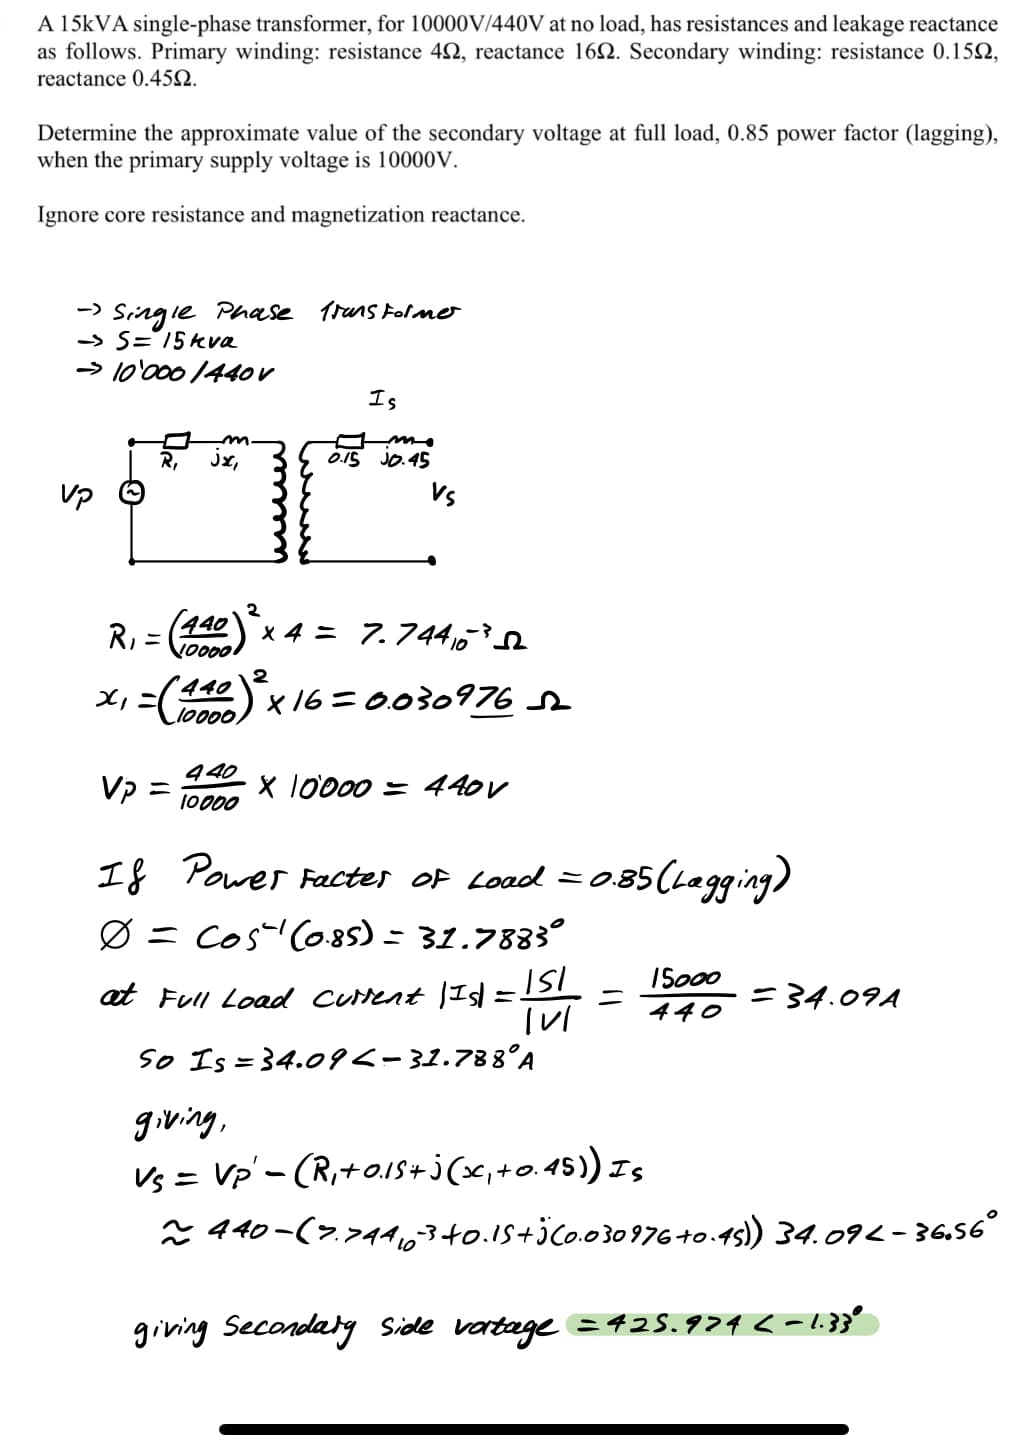 A 15kVA single-phase transformer, for 10000V/440V at no load, has resistances and leakage reactance
as follows. Primary winding: resistance 4Ω, reactance 16Ω. Secondary winding: resistance 0.15Ω,
reactance 0.45Ω.
Determine the approximate value of the secondary voltage at full load, 0.85 power factor (lagging),
when the primary supply voltage is 10000V.
Ignore core resistance and magnetization reactance.
-> Single Phase Transformer
-> S= 15kva
-> 10'000/440v
Is
R₁ jx₁ 0.15 j0.45
Vp Vs
R₁ = (440/10000)² x 4 = 7.744₁₀-³Ω
x₁ = (440/10000)² x 16 = 0.030976 Ω
Vp = 440/10000 x 10'000 = 440v
If Power Facter OF Load = 0.85(Lagging)
Ø = Cos⁻¹(0.85) = 31.7883°
at Full Load Current |Is| = |S|/|V| = 15000/440 = 34.09A
So Is = 34.09<-31.788°A
giving,
Vs = Vp' - (R₁+0.15+j(x₁+0.45)) Is
≈ 440-(7.744₁₀-3+0.15+j(0.030976+0.45)) 34.09<-36.56°
giving Secondary Side vortage = 425.974<-1.33°